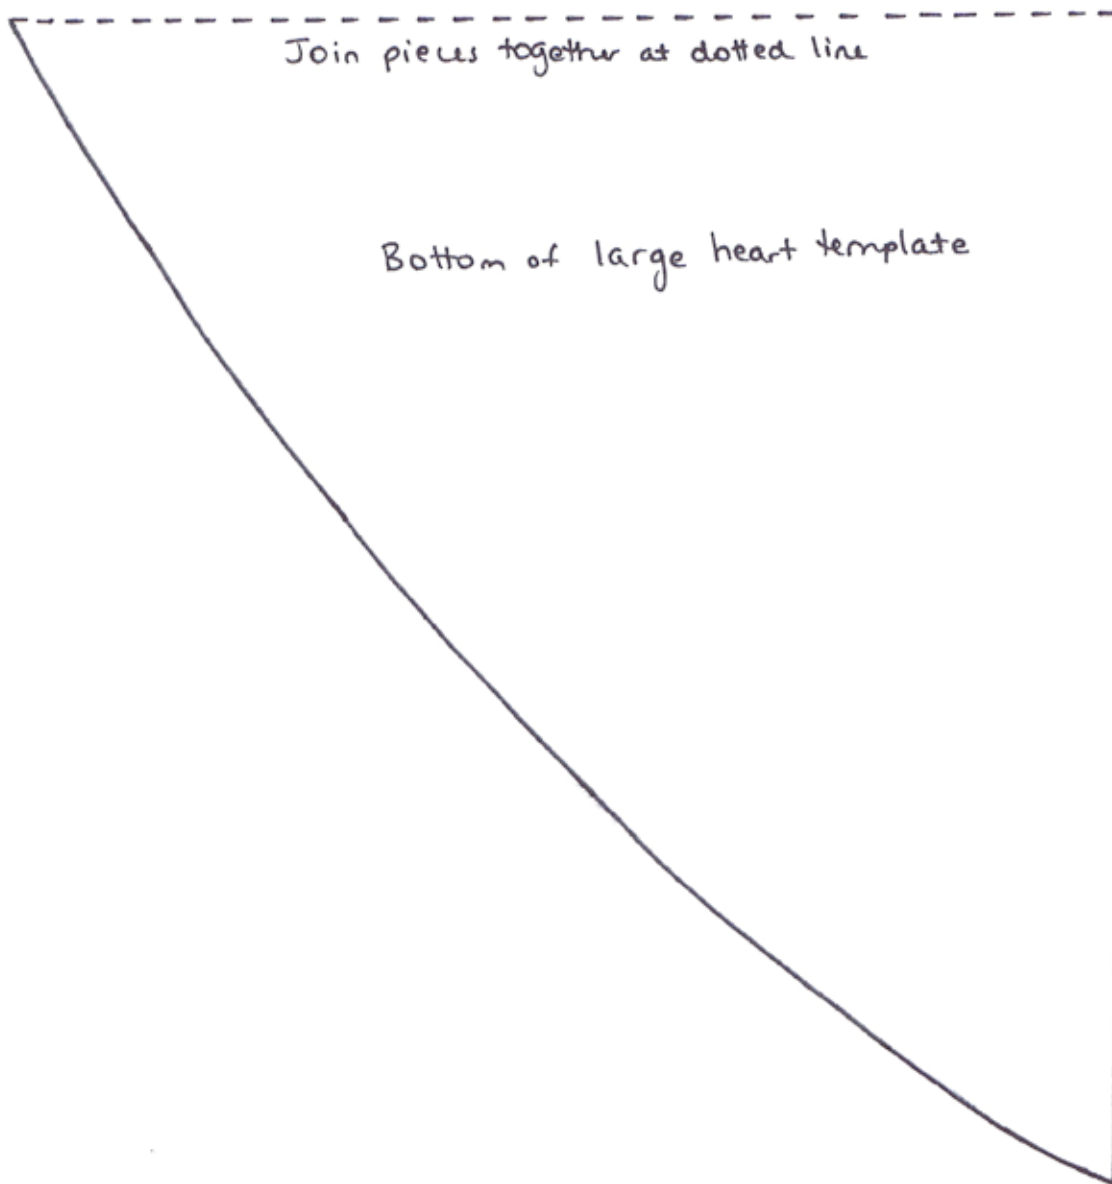 Join pieces together at dotted line
Bottom of large heart template